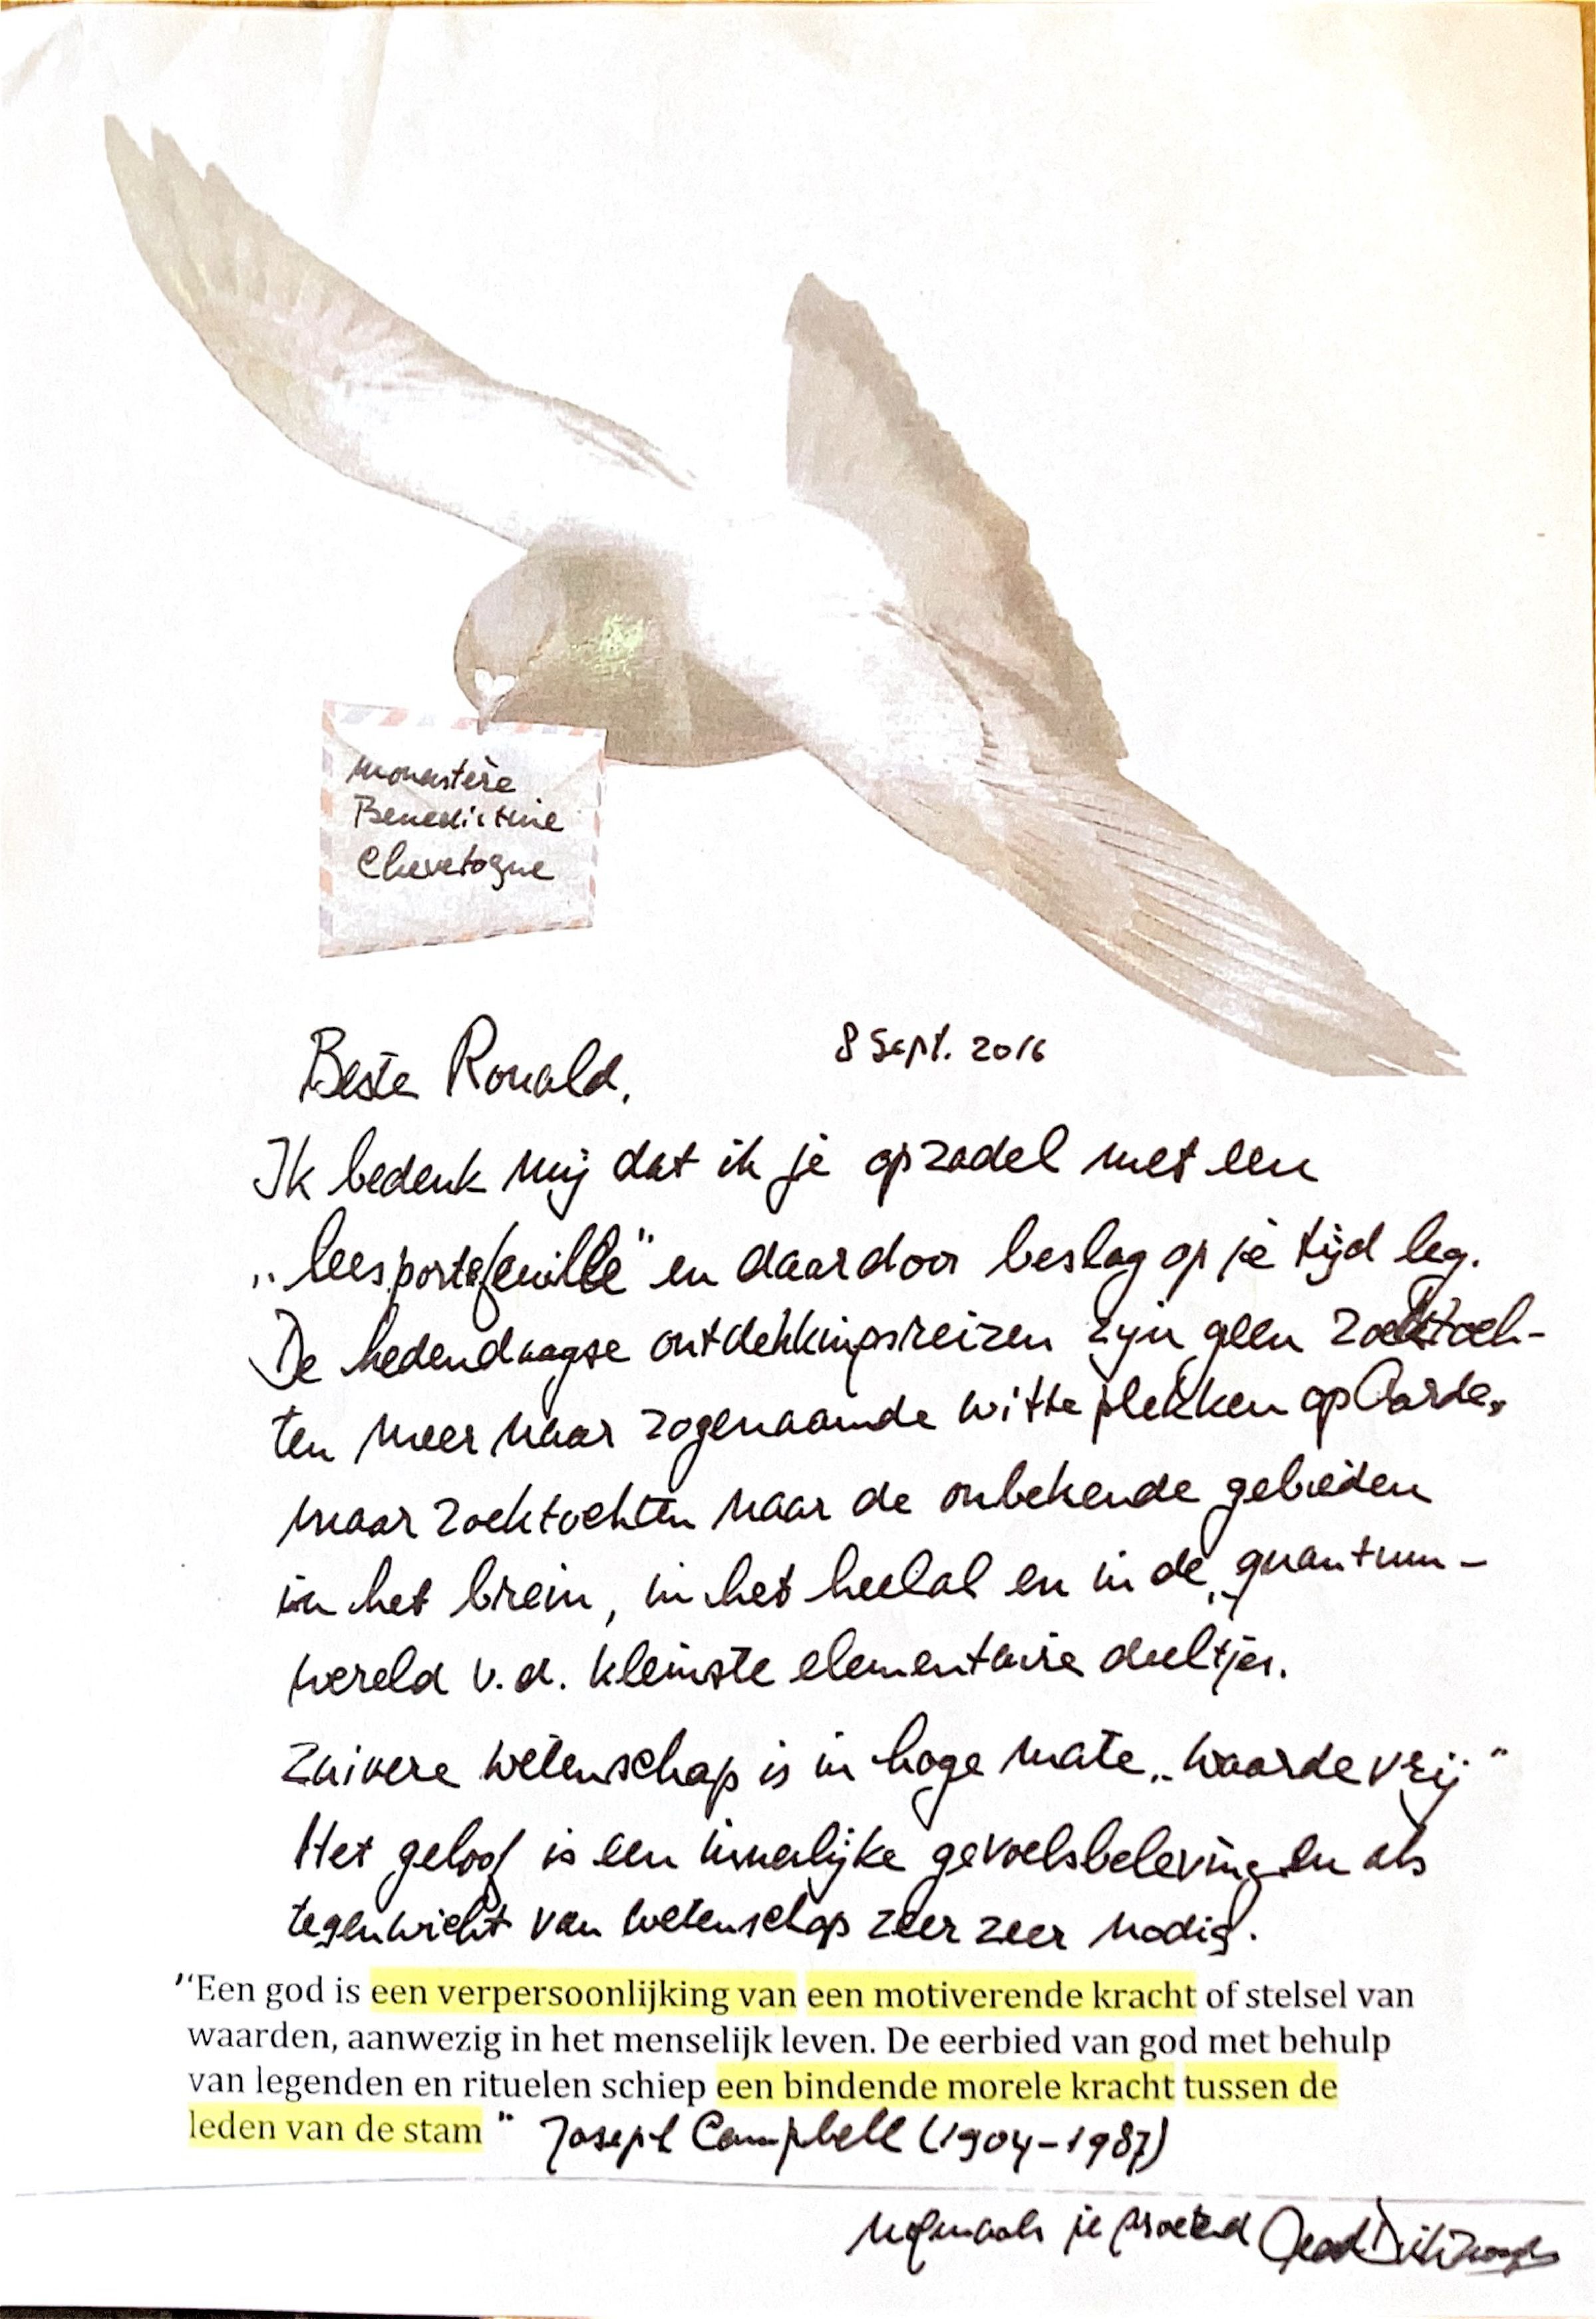 Monastère
Benedictine
Chevetogne
8 Sept. 2016
Beste Ronald,
Ik bedenk mij dat ik je opzadel met een
„leesportefeuille" en daardoor beslag op je tijd leg.
De hedendaagse ontdekkingsreizen zijn geen zoektoch-
ten meer naar zogenaamde witte plekken op Aarde,
maar zoektochten naar de onbekende gebieden
in het brein, in het heelal en in de „quantum-
wereld v.d. kleinste elementaire deeltjes.
Zuivere wetenschap is in hoge mate „waardevrij"
Het geloof is een innerlijke gevoelsbeleving en als
tegenwicht van wetenschap zeer zeer nodig.
"“Een god is een verpersoonlijking van een motiverende kracht of stelsel van
waarden, aanwezig in het menselijk leven. De eerbied van god met behulp
van legenden en rituelen schiep een bindende morele kracht tussen de
leden van de stam " Joseph Campbell (1904-1987)
nogmaals je